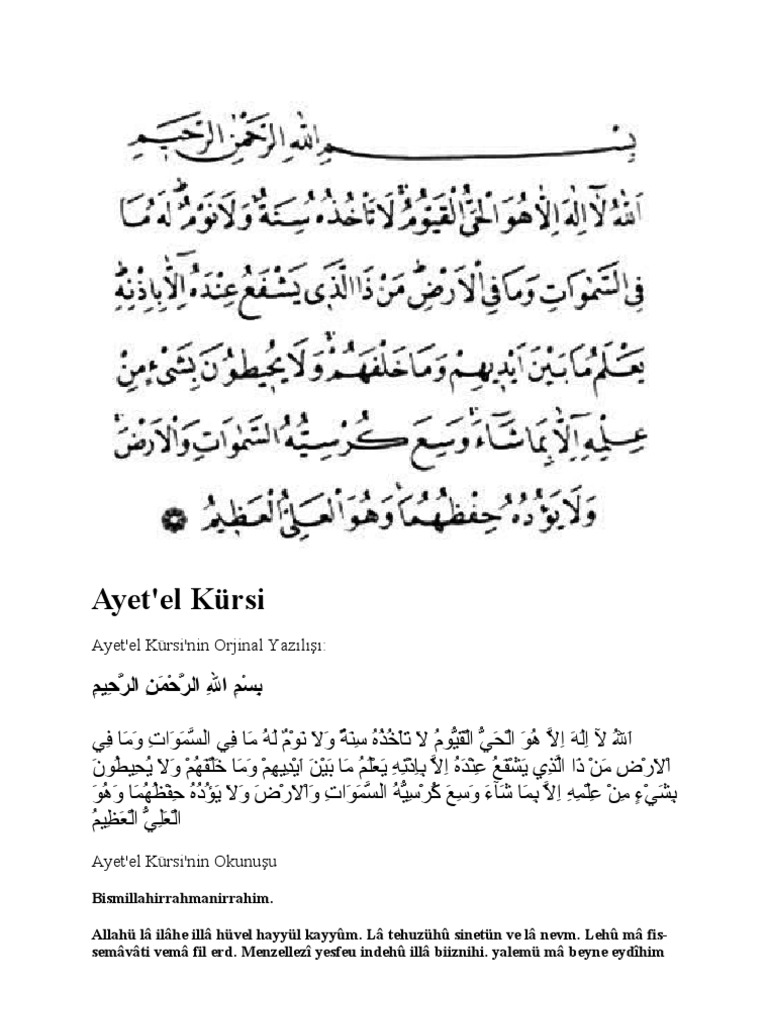 بِسْمِ اللّٰهِ الرَّحْمٰنِ الرَّحٖيمِ
اَللّٰهُ لَٓا اِلٰهَ اِلَّا هُوَ اَلْحَىُّ الْقَيُّومُۚ لَا تَأْخُذُهُ سِنَةٌ وَلَا نَوْمٌۜ لَهُ مَا
فِى السَّمٰوَاتِ وَمَا فِى الْاَرْضِۜ مَنْ ذَا الَّذٖى يَشْفَعُ عِنْدَهُٓ اِلَّا بِاِذْنِهٖۜ
يَعْلَمُ مَا بَيْنَ اَيْدٖيهِمْ وَمَا خَلْفَهُمْۚ وَلَا يُحٖيطُونَ بِشَىْءٍ مِنْ
عِلْمِهٖٓ اِلَّا بِمَا شَٓاءَۚ وَسِعَ كُرْسِيُّهُ السَّمٰوَاتِ وَالْاَرْضَۚ
وَلَا يَؤُدُهُ حِفْظُهُمَاۚ وَهُوَ الْعَلِىُّ الْعَظٖيمُ
Ayet'el Kürsi
Ayet'el Kürsi'nin Orjinal Yazılışı:
بِسْمِ اللهِ الرَّحْمَنِ الرَّحِيمِ
اَللهُ لآَ اِلَهَ اِلاَّ هُوَ الْحَيُّ الْقَيُّومُ لاَ تَاْخُذُهُ سِنَةٌ وَلاَ نَوْمٌ لَهُ مَا فِي السَّمَوَاتِ وَمَا فِي
اْلاَرْضِ مَنْ ذَا الَّذِي يَشْفَعُ عِنْدَهُ اِلاَّ بِاِذْنِهِ يَعْلَمُ مَا بَيْنَ اَيْدِيهِمْ وَمَا خَلْفَهُمْ وَلاَ يُحِيطُونَ
بِشَيْءٍ مِنْ عِلْمِهِ اِلاَّ بِمَا شَآءَ وَسِعَ كُرْسِيُّهُ السَّمَوَاتِ وَاْلاَرْضَ وَلاَ يَؤُدُهُ حِفْظُهُمَا وَهُوَ
الْعَلِيُّ الْعَظِيمُ
Ayet'el Kürsi'nin Okunuşu
Bismillahirrahmanirrahim.
Allahü lâ ilâhe illâ hüvel hayyül kayyûm. Lâ tehuzühû sinetün ve lâ nevm. Lehû mâ fis-
semâvâti vemâ fil erd. Menzellezî yesfeu indehû illâ biiznihi. yalemü mâ beyne eydîhim